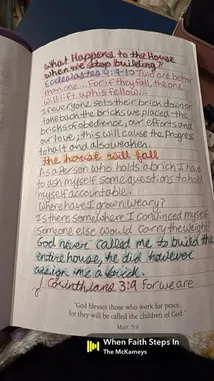 What Happens to the House
when we stop building?
Ecclesiastes 4:9-10 Two are better
than one... For if they fall, the one
will lift up his fellow.
If everyone sets their brick down or
take back the bricks we placed - the
bricks of obedience, our efforts and
our love, this will cause the Progress
to halt and also weaken.
The house will fall
As a person who holds a brick I have
to ask myself some questions to hold
myself accountable.
Where have I grown weary?
Is there somewhere I convinced myself
Someone else would carry the weight?
God never called me to build the
entire house, he did however
assign me a brick.
1 Corinthians 3:9 For we are
"God blesses those who work for peace,
for they will be called the children of God."
MATT. 5:9
When Faith Steps In
The McKameys